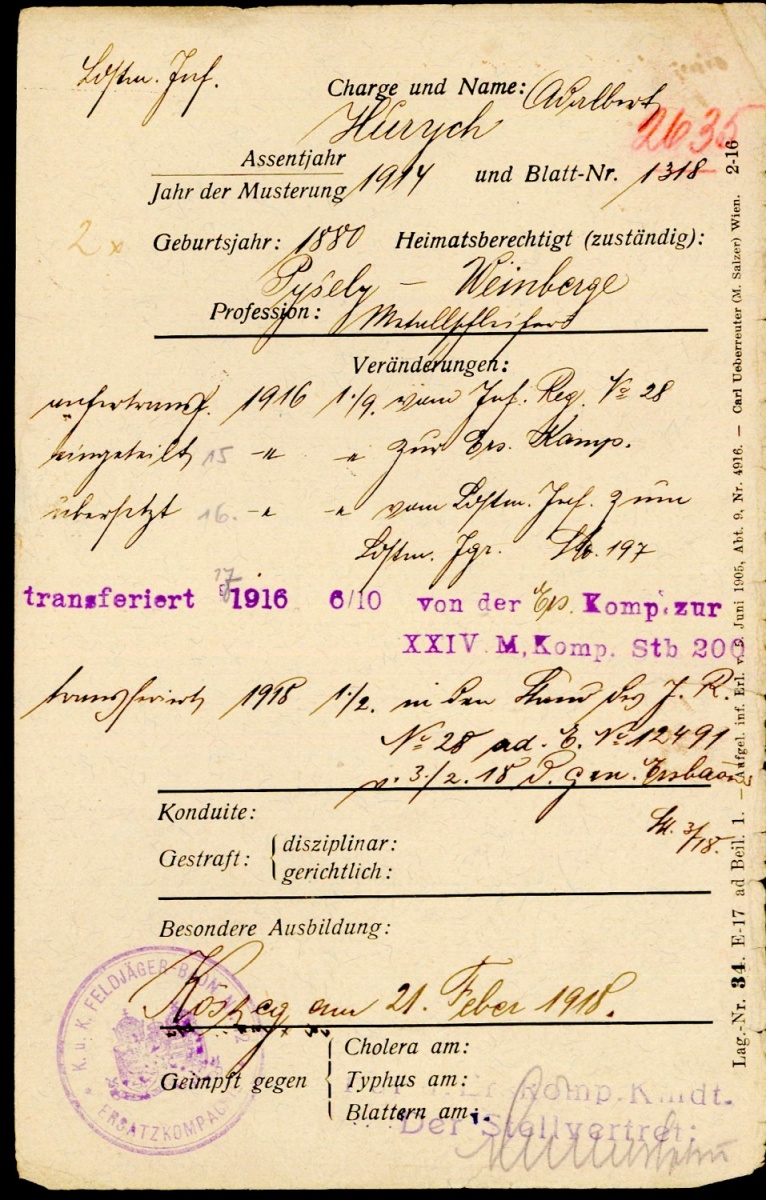 Ldstm. Inf.
Charge und Name: Adalbert
Hurych
2635
Assentjahr
Jahr der Musterung 1914 und Blatt-Nr. 1318
2 x
Geburtsjahr: 1880 Heimatsberechtigt (zuständig):
Pyšely - Weinberge
Profession: Metallschleifer
Veränderungen:
1916 1./9. vom Inf. Reg. No 28
eingeteilt 15 -"- -"- zur Ers. Komp.
übersetzt 16. -"- -"- vom Ldstm. Inf. zum
Ldstm. Jgr. 197
17
transferiert 1916 6/10 von der Ers. Komp. zur
XXIV. M. Komp. Stb 200
transferiert 1918 1./2. in den Stand des I. R.
No 28 ad. E. No 12491
v. 3./2. 18 d.
Konduite:
3/18.
Gestraft: { disziplinar:
gerichtlich:
Besondere Ausbildung:
Köszeg am 21. Feber 1918.
K. u. K. FELDJÄGER-BAON
ERSATZKOMPAGNIE
Geimpft gegen { Cholera am:
Typhus am:
Blattern am:
Komp. Kmdt.
Der Stellvertret:
Lag.-Nr. 34. E-17 ad Beil. 1. — Aufgel. inf. Erl. v. 9. Juni 1905, Abt. 9, Nr. 4916. — Carl Ueberreuter (M. Salzer) Wien. 2-16